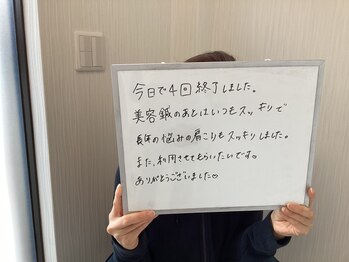 今日で4回終了しました。
美容鍼のあとはいつもスッキリで
長年の悩みの肩こりもスッキリしました。
また、利用させてもらいたいです。
ありがとうございました♡